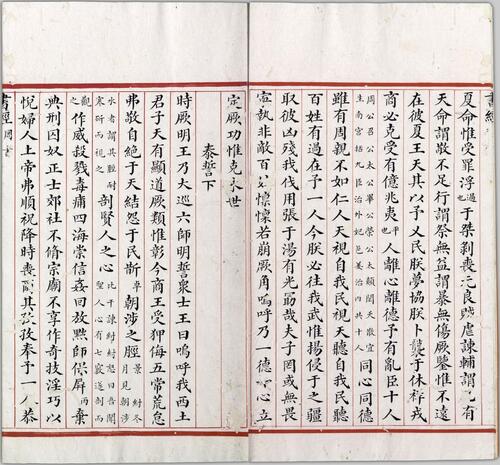 書經
夏命惟受罪浮過也于桀剝喪元良賊虐諫輔謂己有
天命謂敬不足行謂祭無益謂暴無傷厥鑒惟不遠
在彼夏王天其以予乂民朕夢協朕卜襲于休祥戎
商必克受有億兆夷平也人離心離德予有亂臣十人
周公召公太公畢公榮公太顛閎夭散宜
生南宮括九臣治外邑姜治內共十人
同心同德
雖有周親不如仁人天視自我民視天聽自我民聽
百姓有過在予一人今朕必往我武惟揚侵于之疆
取彼凶殘我伐用張于湯有光勗哉夫子罔或無畏
寧執非敵百姓懍懍若崩厥角嗚呼乃一德一心立
定厥功惟克永世
泰誓下
時厥明王乃大巡六師明誓衆士王曰嗚呼我西土
君子天有顯道厥類惟彰今商王受狎侮五常荒怠
弗敬自絕于天結怨于民斮朝涉之脛紂冬月見朝涉
水者謂其脛耐
寒斫而視之
剖賢人之心
比干諫紂紂怒曰吾聞
聖人心有七竅遂剖而
觀之作威殺戮毒痡四海崇信姦回放黜師保屏棄
典刑囚奴正士郊社不修宗廟不享作奇技淫巧以
悅婦人上帝弗順祝降時喪爾其孜孜奉予一人恭
書經